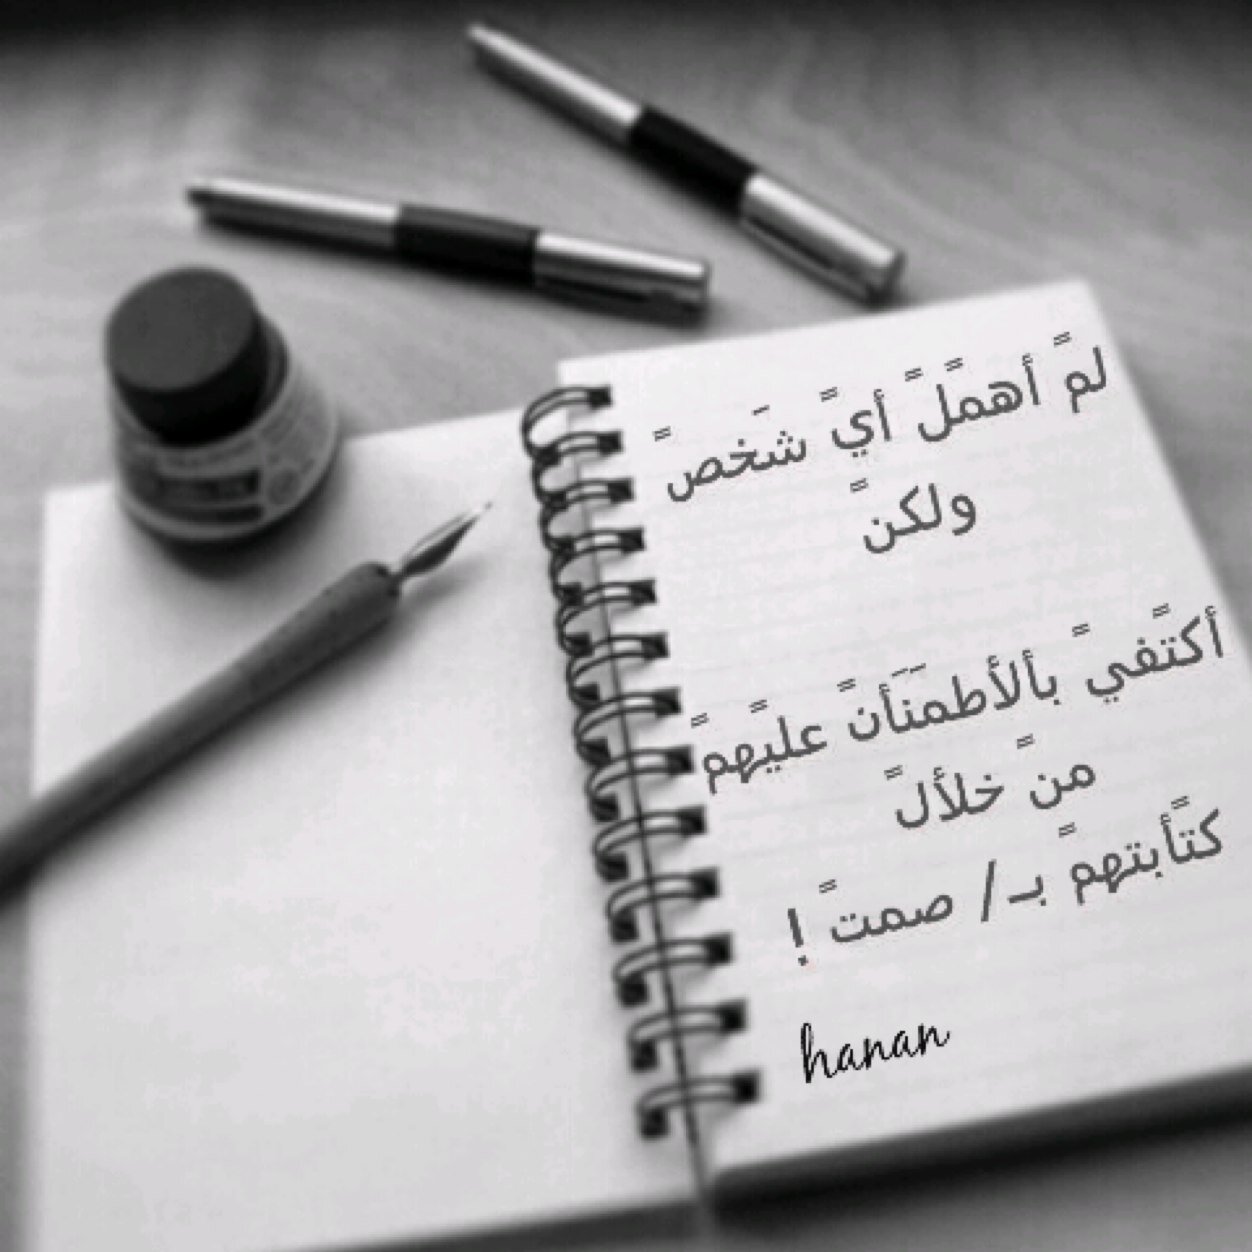 لمً أهمًلً أيً شَخصً
ولكنً
أكتًفيً بألأطمَنَأنً عليًهمً
منً خلألً
كتًأبتهمً بـ/ صمتً !
hanan